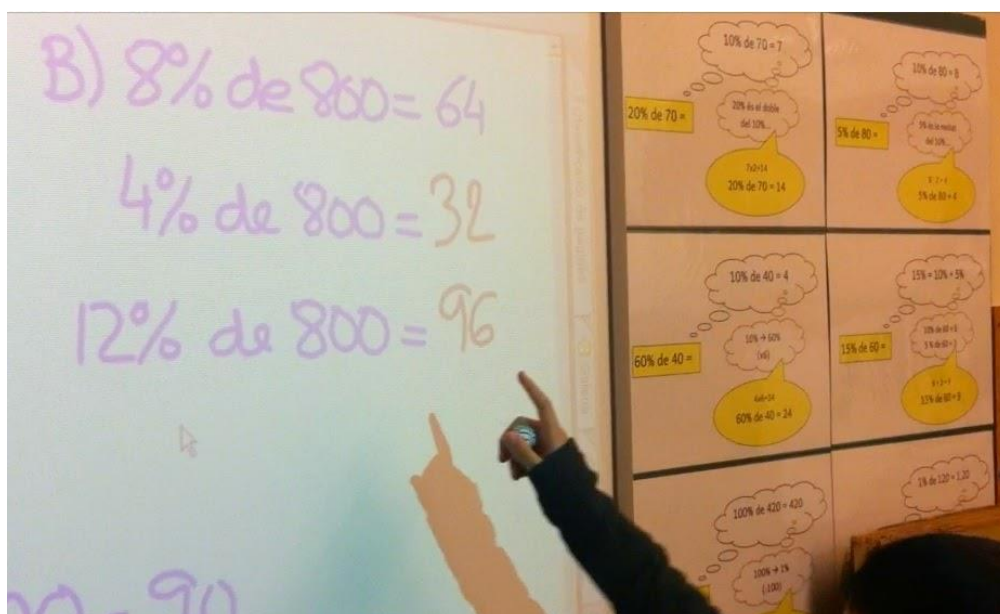 B) 8% de 800 = 64
4% de 800 = 32
12% de 800 = 96
90
10% de 70 = 7
20% de 70 =
20% és el doble
del 10%...
7x2=14
20% de 70 = 14
10% de 80 = 8
5% de 80 =
5% és la meitat
del 10%...
5% de 80 = 4
10% de 40 = 4
60% de 40 =
10% → 60%
(x6)
4x6=24
60% de 40 = 24
15% = 10% + 5%
15% de 60 =
10% de 60 = 6
5% de 60 = 3
6 + 3 = 9
15% de 60 = 9
100% de 420 = 420
100% → 1%
(:100)
1% de 120 = 1,20